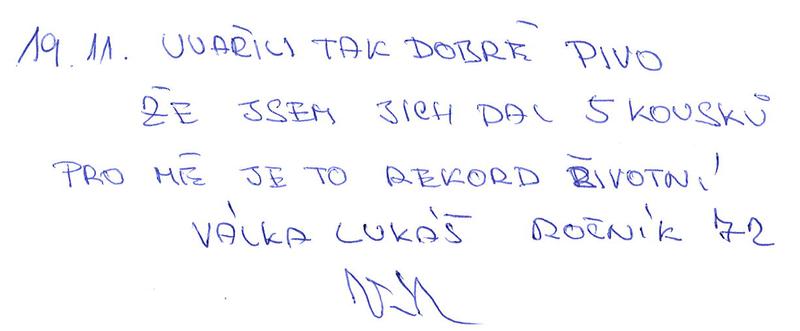 19.11. UVAŘILI TAK DOBRÉ PIVO
ŽE JSEM JICH DAL 5 KOUSKŮ
PRO MĚ JE TO REKORD ŽIVOTNÍ
VÁLKA LUKÁŠ ROČNÍK 72